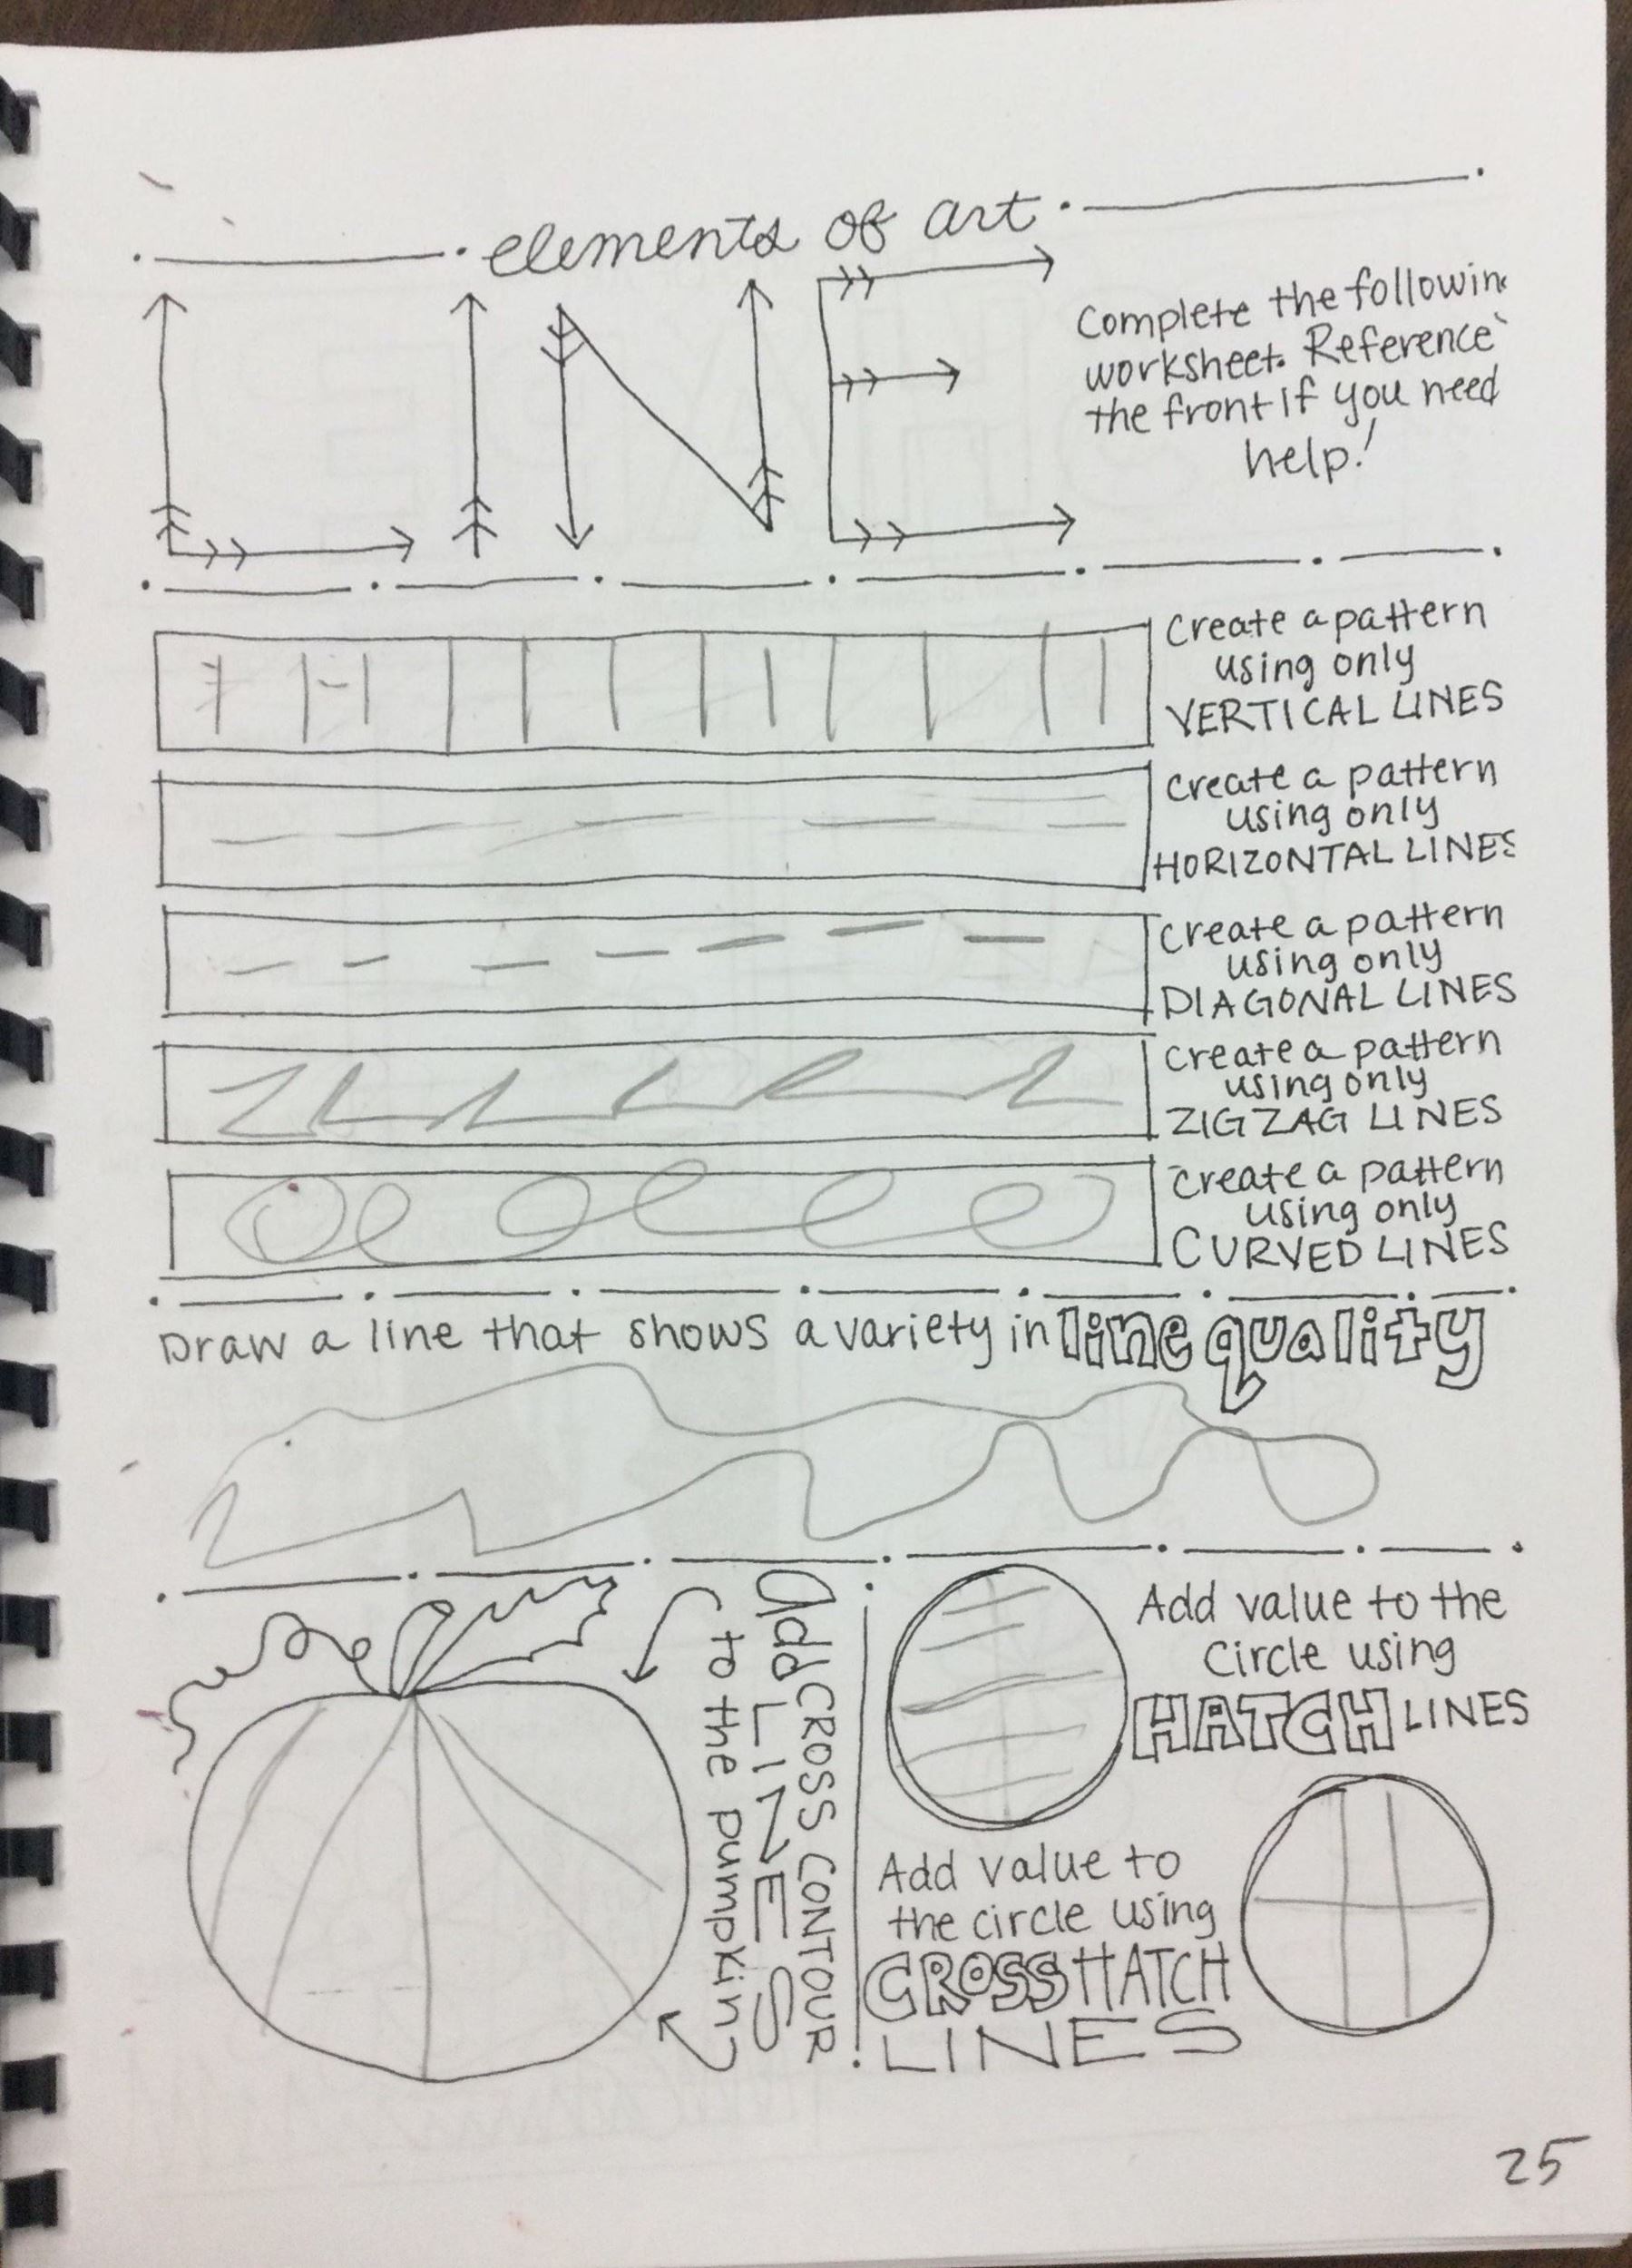 elements of art
LINE
Complete the followin
worksheet. Reference
the front if you need
help!
Create a pattern
using only
VERTICAL LINES
Create a pattern
using only
HORIZONTAL LINES
Create a pattern
using only
DIAGONAL LINES
Create a pattern
using only
ZIGZAG LINES
Create a pattern
using only
CURVED LINES
Draw a line that shows a variety in line quality
Add CROSS CONTOUR
LINES
to the pumpkin
Add value to the
circle using
HATCH LINES
Add value to
the circle using
CROSS HATCH
LINES
25